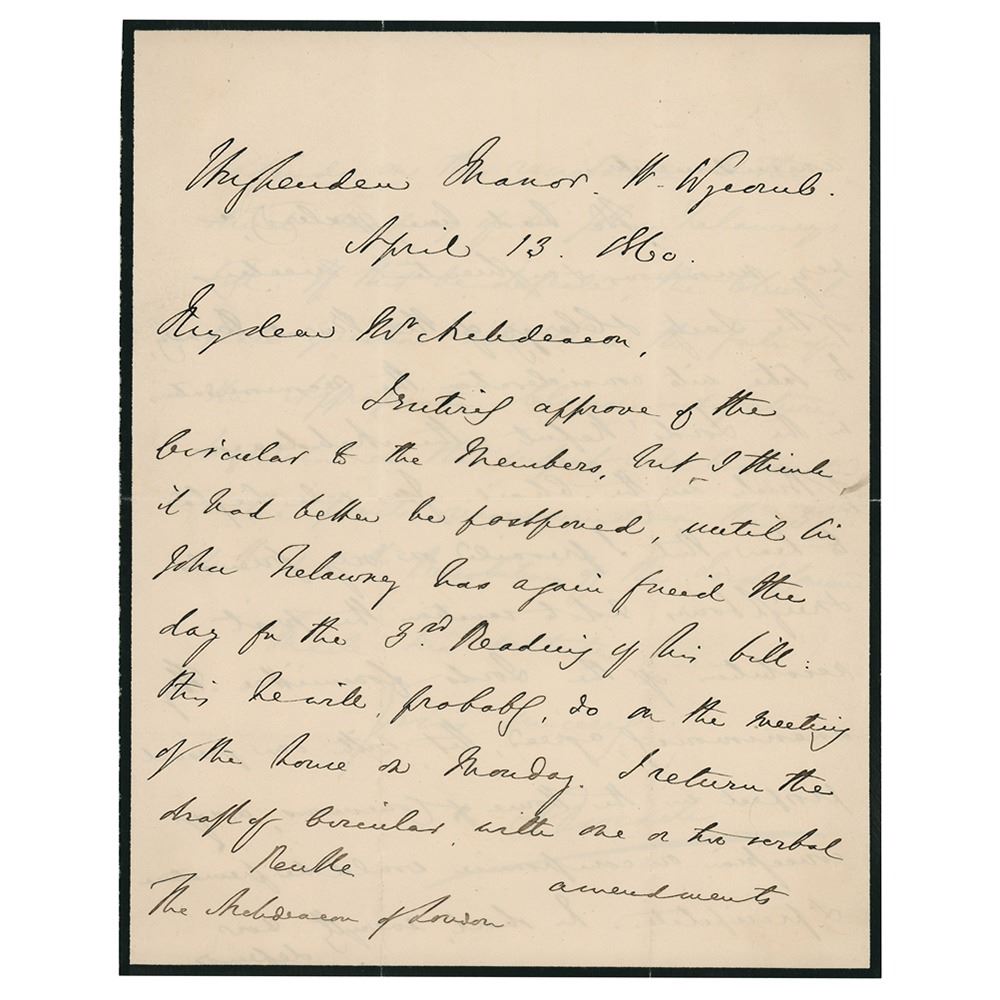 Hughenden Manor. H. Wycomb.
April 13. 1860.
My dear Mr Archdeacon,
I entirely approve of the
circular to the Members, but I think
it had better be postponed, until Sir
John Trelawney has again fixed the
day for the 3rd. Reading of his bill:
this he will, probably, do on the meeting
of the house on Monday. I return the
draft of circular with one or two verbal
amendments
The Archdeacon of London